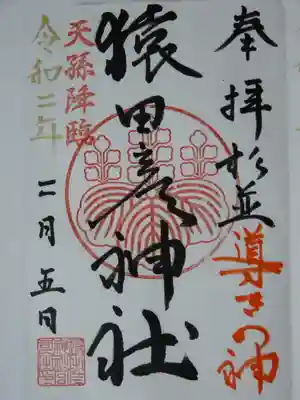 奉拝 杉並 導きの神
猿田彦神社
天孫降臨
令和二年
二月五日